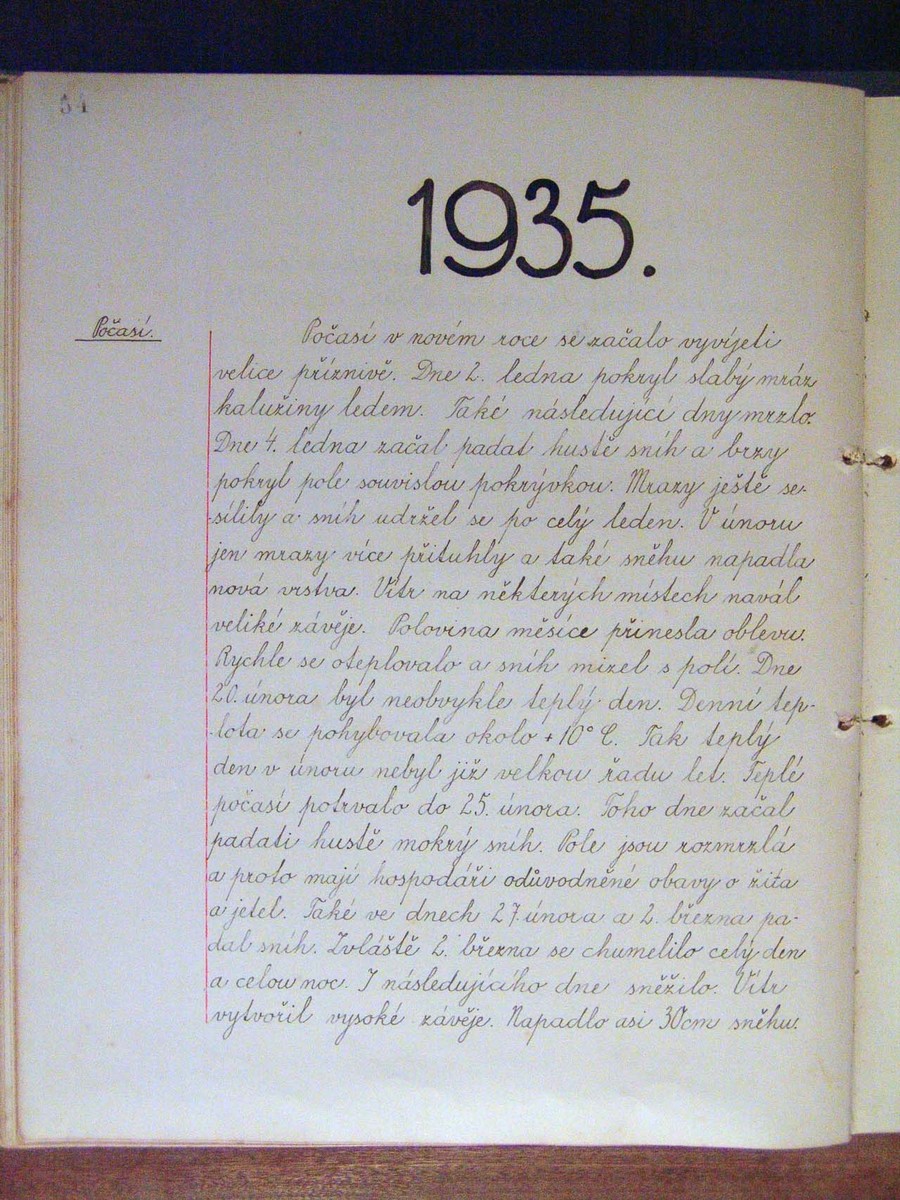 54
1935.
Počasí.
Počasí v novém roce se začalo vyvíjeti
velice příznivě. Dne 2. ledna pokryl slabý mráz
kalužiny ledem. Také následující dny mrzlo.
Dne 4. ledna začal padat hustě sníh a brzy
pokryl pole souvislou pokrývkou. Mrazy ještě se-
-sílily a sníh udržel se po celý leden. V únoru
jen mrazy více přituhly a také sněhu napadla
nová vrstva. Vítr na některých místech navál
veliké závěje. Polovina měsíce přinesla oblevu.
Rychle se oteplovalo a sníh mizel s polí. Dne
20. února byl neobvykle teplý den. Denní tep-
-lota se pohybovala okolo +10° C. Tak teplý
den v únoru nebyl již velkou řadu let. Teplé
počasí potrvalo do 25. února. Toho dne začal
padati hustě mokrý sníh. Pole jsou rozmrzlá
a proto mají hospodáři odůvodněné obavy o žita
a jetel. Také ve dnech 27. února a 2. března pa-
dal sníh. Zvláště 2. března se chumelilo celý den
a celou noc. I následujícího dne sněžilo. Vítr
vytvořil vysoké závěje. Napadlo asi 30cm sněhu.